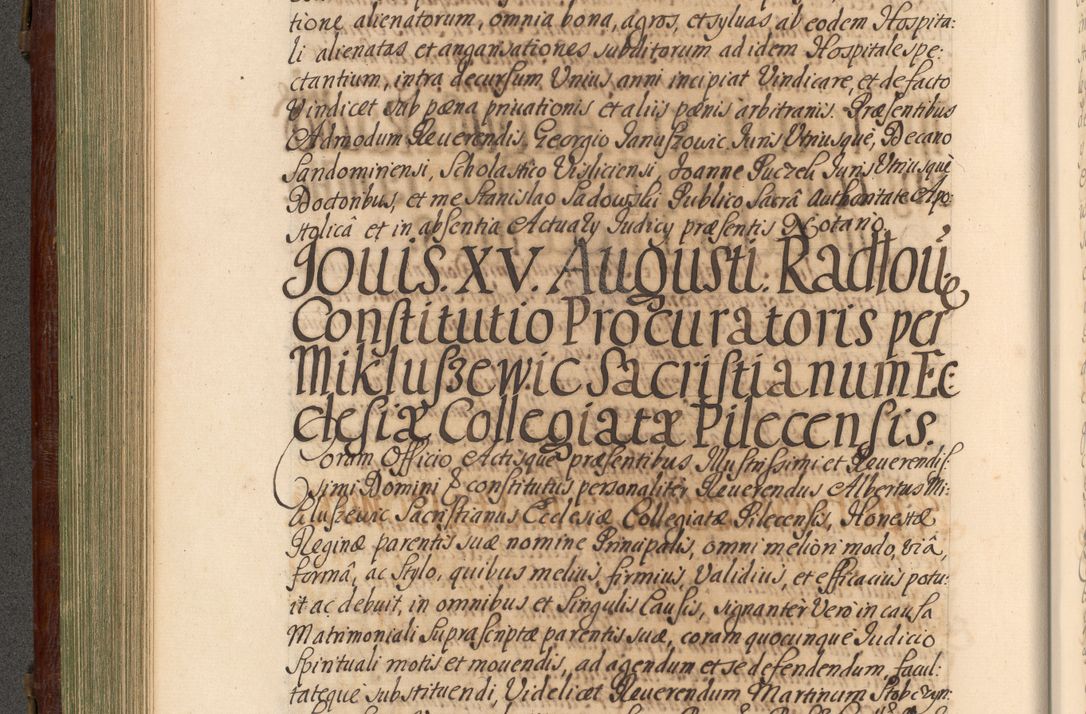 tione alienatorum, omnia bona, agros, et syluas ab eodem Hospita:
li alienatas et angarisationes subditorum ad idem Hospitale spe:
ctantium, intra decursum Vnius anni incipiat Vindicare, et de facto
Vindicet sub pæna priuationis et aliis pænis arbitrariis. Præsentibus
Admodum Reuerendis Georgio Januszowic Juris Vtriusquè, Decano
Sandomiriensi, Scholastico Visliciensi, Joanne Puczek Juris Vtriusquè
Doctoribus, et me Stanislao Sadowski Publico Sacrâ Authoritate Apo:
stolicâ et in absentia Actualy Judicy præsentis Notario.
Jouis. XV. Augusti. Radłou
Constitutio Procuratoris per
Mikluszewic Sacristianum Ec:
clesiæ Collegiatæ Pilecensis.
Coram Officio Actisque præsentibus Illustrissimi et Reuerendis:
simi Domini & constitutus personaliter Reuerendus Albertus Mi:
kluszewic Sacristianus Ecclesiæ Collegiatæ Pilecensis, Honestæ
Reginæ parentis suæ nomine Principalis, omni meliori modo, viâ,
formâ, ac stylo, quibus melius, firmius, Validius, et efficacius potu:
it ac debuit, in omnibus et singulis Causis, signantèr Vero in causa
Matrimoniali suprascriptæ parentis suæ, coram quocunque Judicio
Spirituali motis et mouendis, ad agendum et se defendendum facul:
tatequè substituendi, Videlicet Reuerendum Martinum Stobczyn: